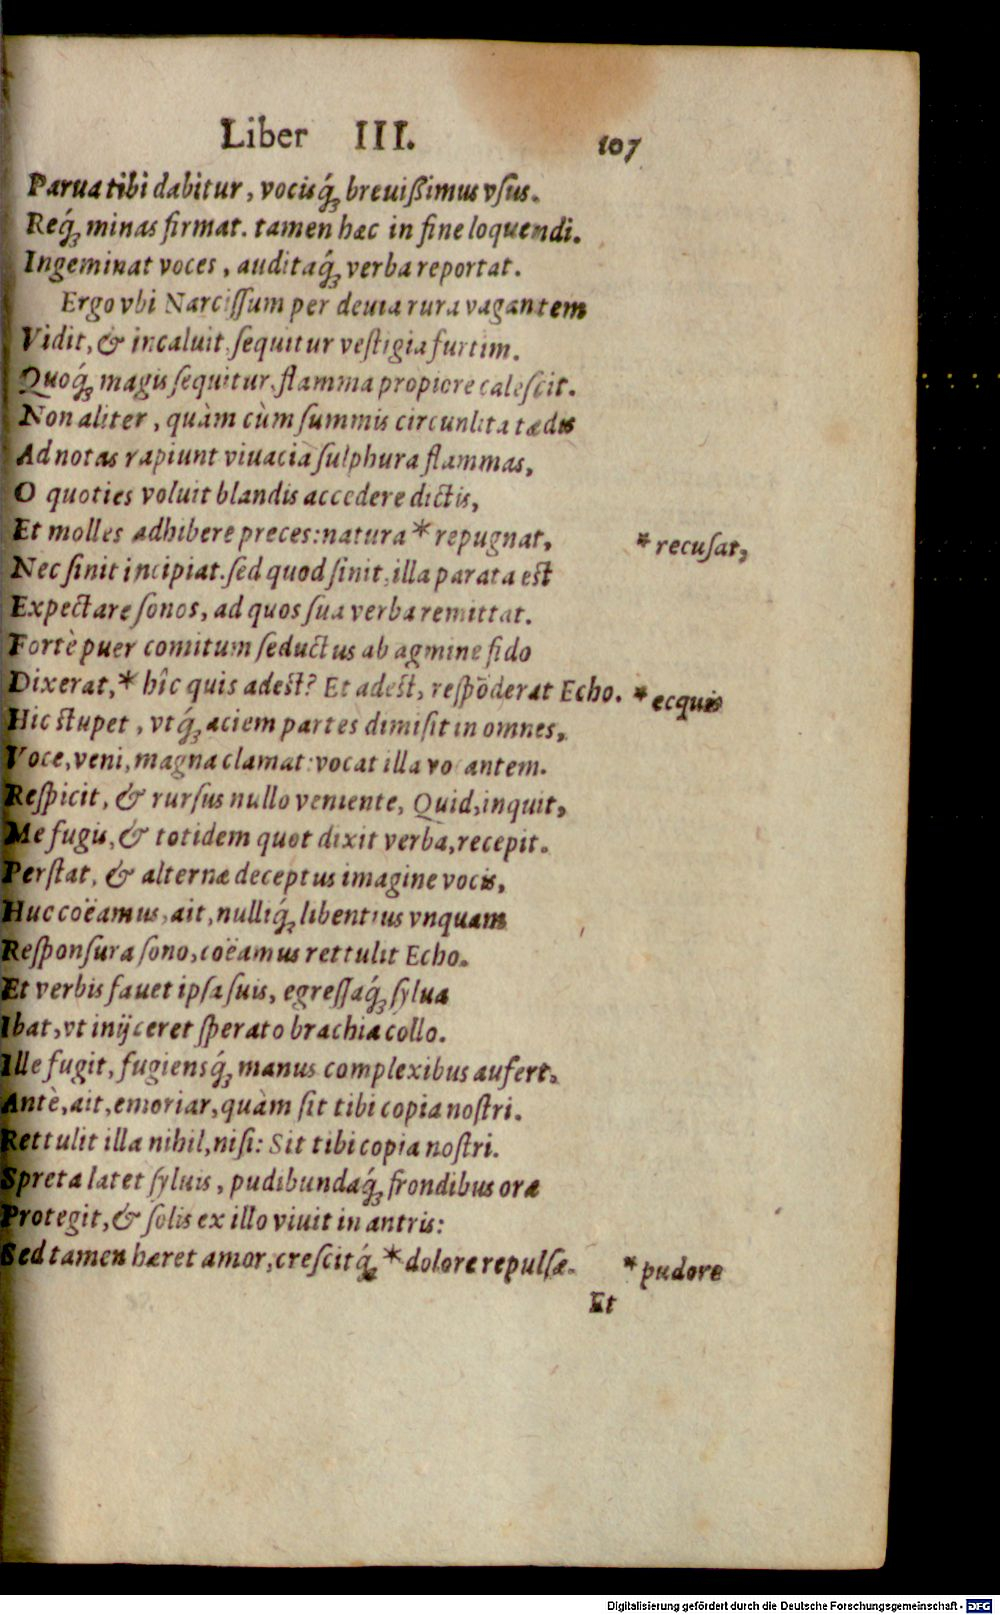 Liber III. 107
Parua tibi dabitur, vocisq́; breuißimus vsus.
Req́; minas firmat. tamen hæc in fine loquendi.
Ingeminat voces, auditaq́; verba reportat.
Ergo vbi Narcissum per deuia rura vagantem
Vidit, & incaluit, sequitur vestigia furtim.
Quoq́; magis sequitur, flamma propiore calescit.
Non aliter, quàm cùm summis circunlita tædis
Ad notas rapiunt viuacia sulphura flammas,
O quoties voluit blandis accedere dictis,
Et molles adhibere preces: natura * repugnat, * recusat,
Nec sinit incipiat. sed quod sinit, illa parata est
Expectare sonos, ad quos sua verba remittat.
Fortè puer comitum seductus ab agmine fido
Dixerat, * hîc quis adest? Et adest, respōderat Echo. * ecquis
Hic stupet, vtq́; aciem partes dimisit in omnes,
Voce, veni, magna clamat: vocat illa vo antem.
Respicit, & rursus nullo veniente, Quid, inquit,
Me fugis, & totidem quot dixit verba, recepit.
Perstat, & alternæ deceptus imagine vocis,
Huc coëamus, ait, nulliq́; libentius vnquam
Responsura sono, coëamus rettulit Echo.
Et verbis fauet ipsa suis, egressaq́; sylua
Ibat, vt inijceret sperato brachia collo.
Ille fugit, fugiensq́; manus complexibus aufert.
Antè, ait, emoriar, quàm sit tibi copia nostri.
Rettulit illa nihil, nisi: Sit tibi copia nostri.
Spreta latet syluis, pudibundaq́; frondibus ora
Protegit, & solis ex illo viuit in antris:
Sed tamen hæret amor, crescitq́; * dolore repulsæ. * pudore
Et
Digitalisierung gefördert durch die Deutsche Forschungsgemeinschaft - DFG